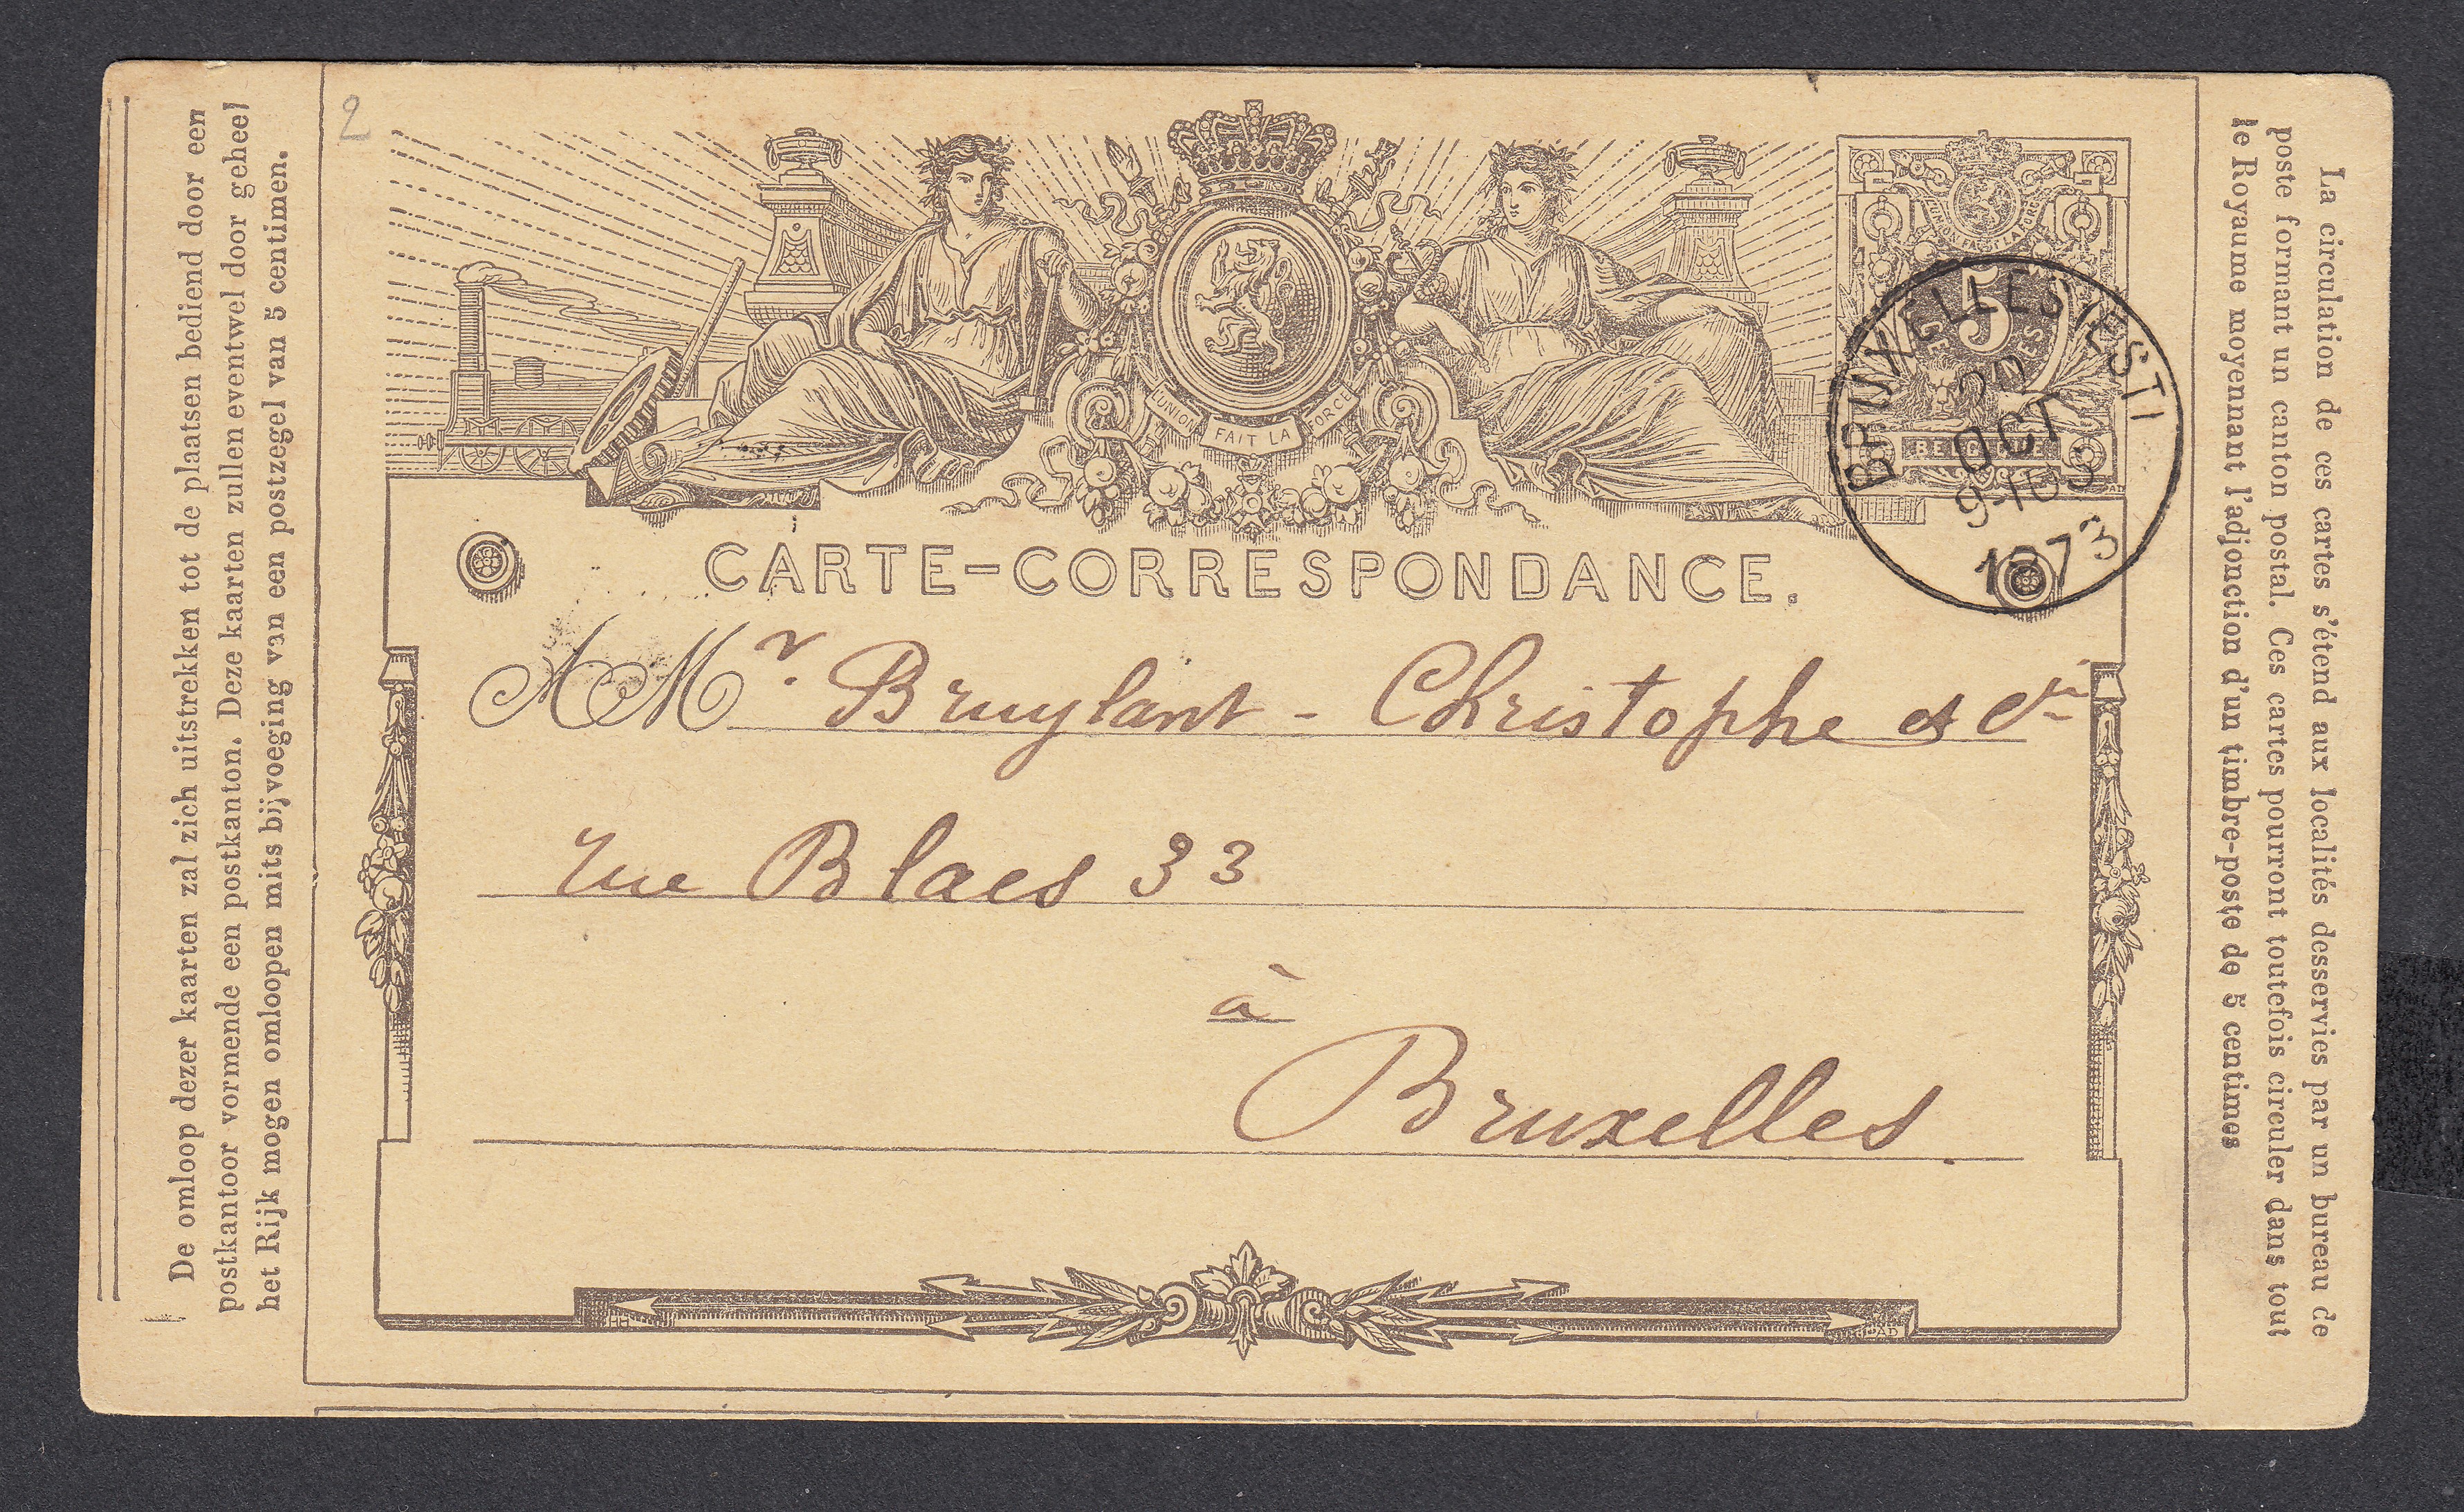 2
De omloop dezer kaarten zal zich uitstrekken tot de plaatsen bediend door een
postkantoor vormende een postkanton. Deze kaarten zullen eventwel door geheel
het Rijk mogen omloopen mits bijvoeging van een postzegel van 5 centimen.
L'UNION FAIT LA FORCE
L'UNION FAIT LA FORCE
5
CENTIMES
BELGIQUE
BRUXELLES (EST)
20
OCT
9-10 S
1873
CARTE-CORRESPONDANCE.
A Mr. Bruylant - Christophe et Cie
rue Blaes 33
à
Bruxelles.
AD
La circulation de ces cartes s'étend aux localités desservies par un bureau de
poste formant un canton postal. Ces cartes pourront toutefois circuler dans tout
le Royaume moyennant l'adjonction d'un timbre-poste de 5 centimes